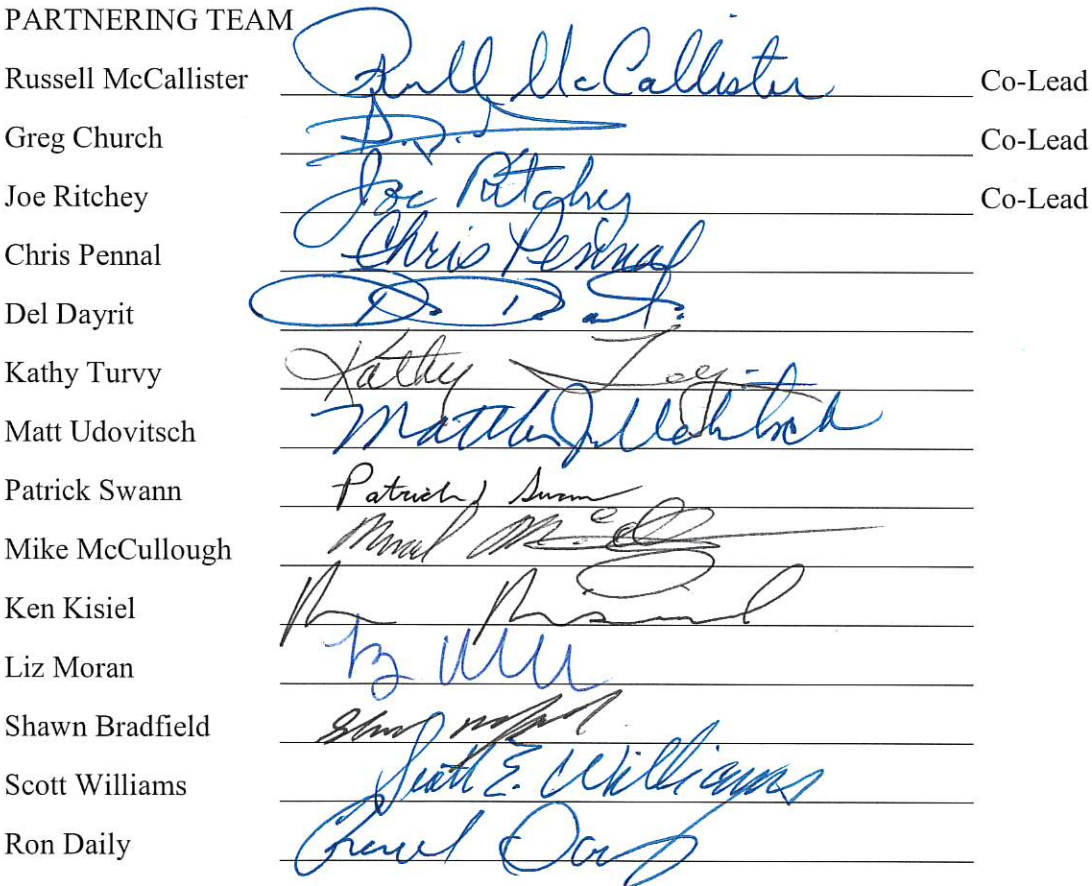 PARTNERING TEAM
Russell McCallister Russell McCallister Co-Lead
Greg Church Co-Lead
Joe Ritchey Joe Ritchey Co-Lead
Chris Pennal Chris Pennal
Del Dayrit
Kathy Turvy Kathy
Matt Udovitsch Matthew J Udovitsch
Patrick Swann Patrick J Swann
Mike McCullough
Ken Kisiel
Liz Moran
Shawn Bradfield
Scott Williams Scott E. Williams
Ron Daily